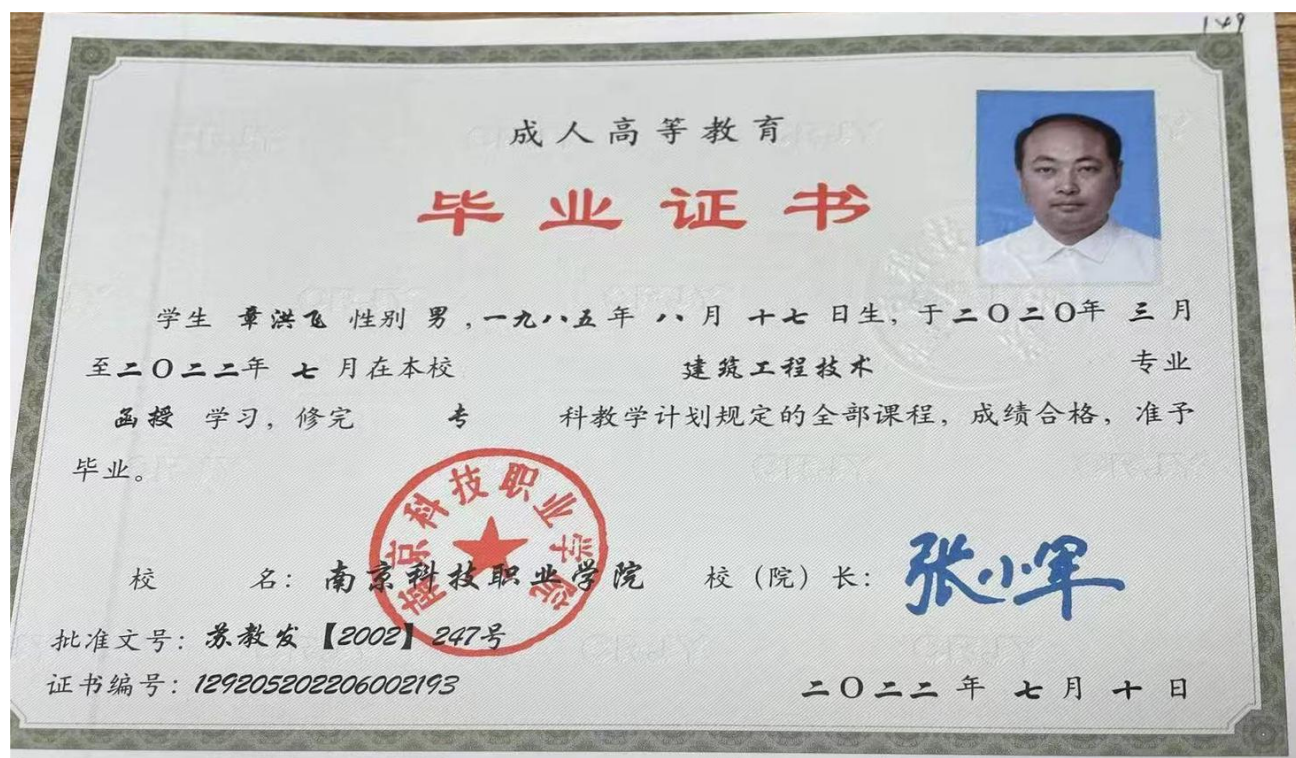 149
成人高等教育
毕业证书
学生 章洪飞 性别 男 ,一九八五年 八 月 十七 日生, 于二〇二〇年 三 月
至二〇二二年 七 月在本校 建筑工程技术 专业
函授 学习, 修完 专 科教学计划规定的全部课程, 成绩合格, 准予
毕业。
南京科技职业学院
校 名: 南京科技职业学院 校 (院) 长: 张小军
批准文号: 苏教发【2002】247号
证书编号: 129205202206002193 二〇二二 年 七 月 十 日